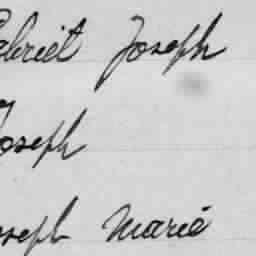 Gabriel Joseph
Joseph
Joseph Marie